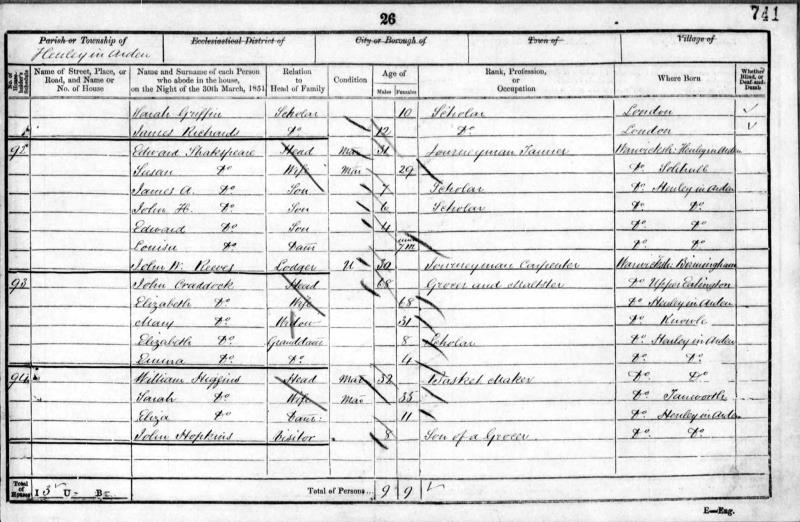 26
741
Parish or Township of Ecclesiastical District of City or Borough of Town of Village of
Henley in Arden
No. of Householder's Schedule Name of Street, Place, or Road, and Name or No. of House Name and Surname of each Person who abode in the house, on the Night of the 30th March, 1851 Relation to Head of Family Condition Age of Males Females Rank, Profession, or Occupation Where Born Whether Blind, or Deaf-and-Dumb
Sarah Griffin Scholar 10 Scholar London
James Richards Do 12 Do London
Edward Shakspeare Head Mar 31 Journeyman Tanner Warwicksh. Henley in Arden
Susan Do Wife Mar 29 Do Solihull
James A. Do Son 7 Scholar Do Henley in Arden
John H. Do Son 6 Scholar Do Do
Edward Do Son 4 Do Do
Louisa Do Daur 7 m Do Do
John W. Reeves Lodger U 30 Journeyman Carpenter Warwicksh. Birmingham
93 John Craddock Head 68 Grocer and Maltster Do Upper Eatington
Elizabeth Do Wife 68 Do Henley in Arden
Mary Do Widow 31 Do Knowle
Elizabeth Do Granddaur 8 Scholar Do Henley in Arden
Emma Do Do 4 Do Do
94 William Huggins Head Mar 32 Basket Maker Do Do
Sarah Do Wife Mar 33 Do Tanworth
Eliza Do Daur 11 Do Henley in Arden
John Hopkins Visitor 8 Son of a Grocer Do Do
Total of Houses I 3 U B Total of Persons... 9 9
E—Eng.